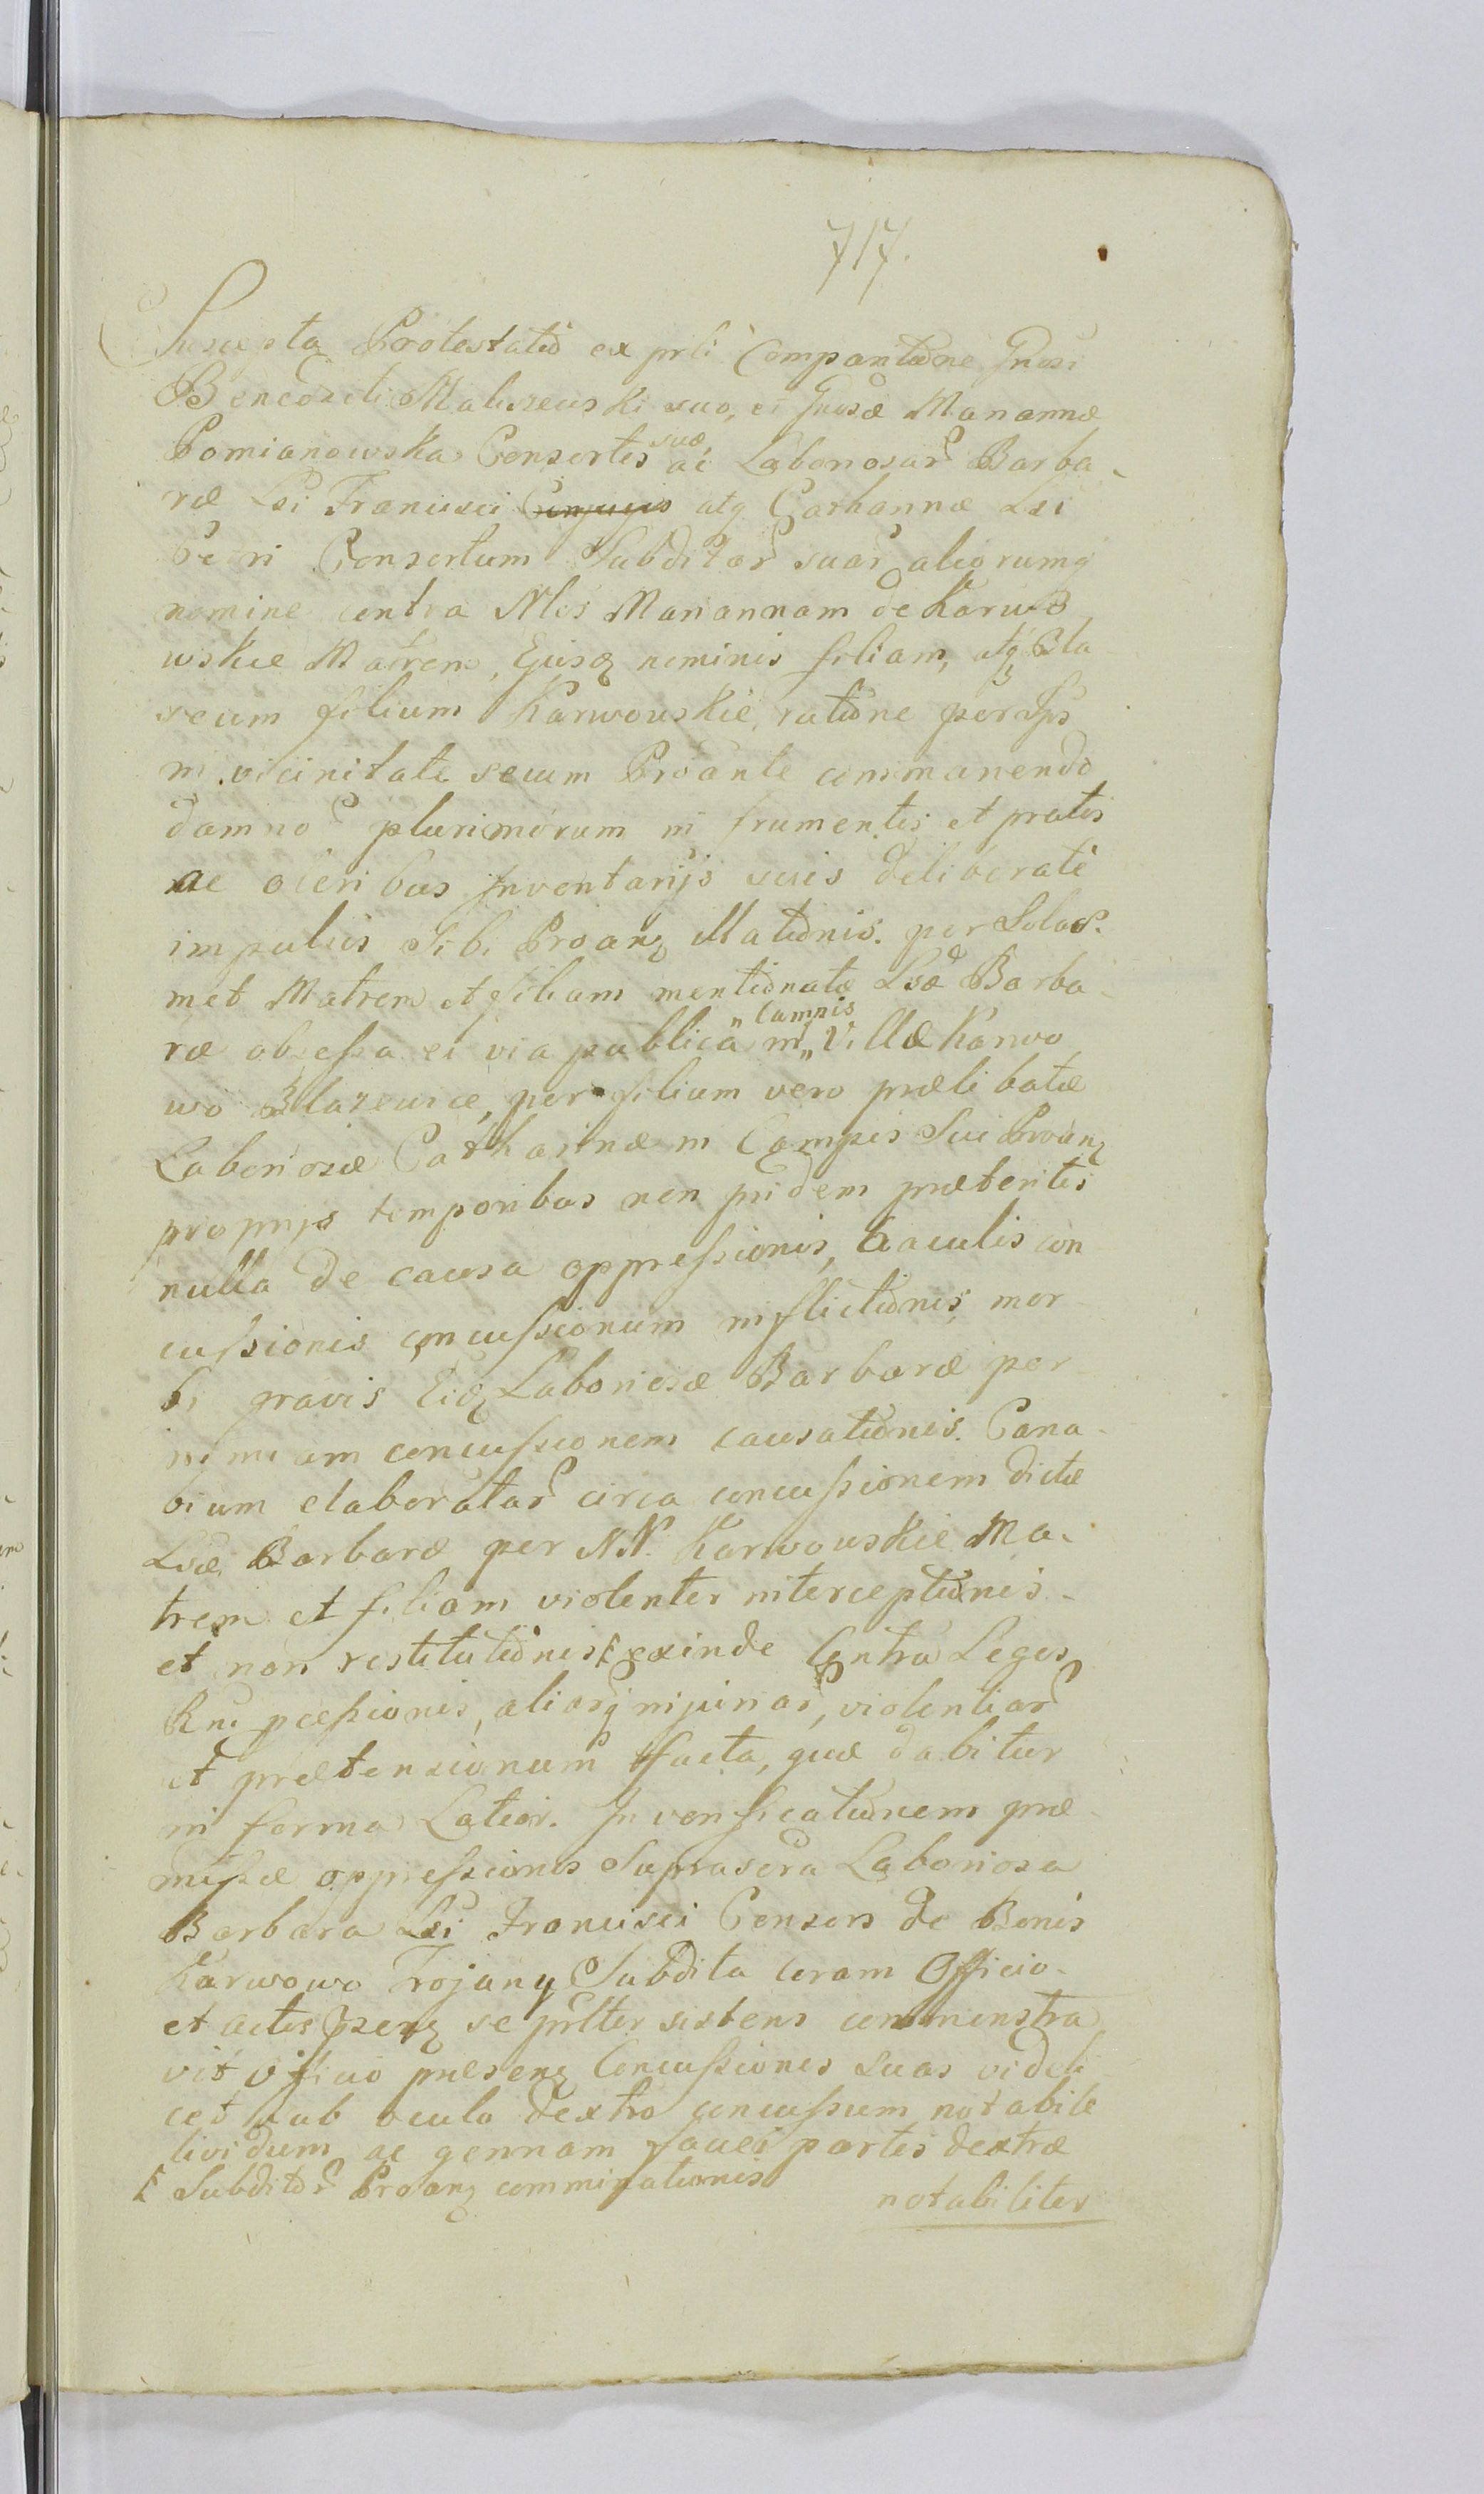 717.
Suscepta Protestatio ex prli Compantione Gnosi
Benedicti Maliszewski suo, et Gnosæ Mariannæ
Pomianowska Consortis suæ, ac Laboriosar Barba-
ræ Lsi Francisci Conjugis atq Catharinæ Lsi
Petri Consortum Subditar suar aliorumq
nomine contra Nles Mariannam de Karwo
wskie Matrem, Ejusq nominis filiam, atq Bla
seum filium Karwowskie, ratione per Ips
in vicinitate secum Proante commanendo
damnor plurimorum in frumentis et pratis
ac oleribus Inventarijs suis deliberate
impulsis Sibi Proanq illationis. per Solas
met Matrem et filiam mentionatæ Lsæ Barba-
ræ obsessa ei via publica in „Campis„ Villæ Karwo
wo Blazewice, per filium vero prælibatæ
Laboriosæ Catharinæ in Campis Sui Proanq
proprijs temporibus non pridem præteritis
nulla de causa oppressionis, baculis con
cussionis concussionum inflictionis, mor
bi gravis Eidq Laboriosæ Barbaræ per
nimiam concussionem causationis. Cana-
bium elaboratar circa concussionem dictæ
Lsæ Barbaræ per NN. Karwowskie Ma-
trem et filiam violenter interceptionis
et non restitutionis exinde Contra Leges
Rni pcessionis, aliarq injuriar, violentiar
et prætensionum facta, quæ dabitur
in forma Latiori. In verificationem præ
missæ oppressionis Suprascra Laboriosa
Barbara Lsi Francisci Consors de Bonis
Karwowo Trojany Subdita coram Officio
et actis pzenq se prlter sistens commonstra
vit officio præsenq Concussiones suas videli
cet sub oculo dextro concussum notabile
lividum, ac gennam faciei partis dextræ
Subditor Proanq comminationis
notabiliter